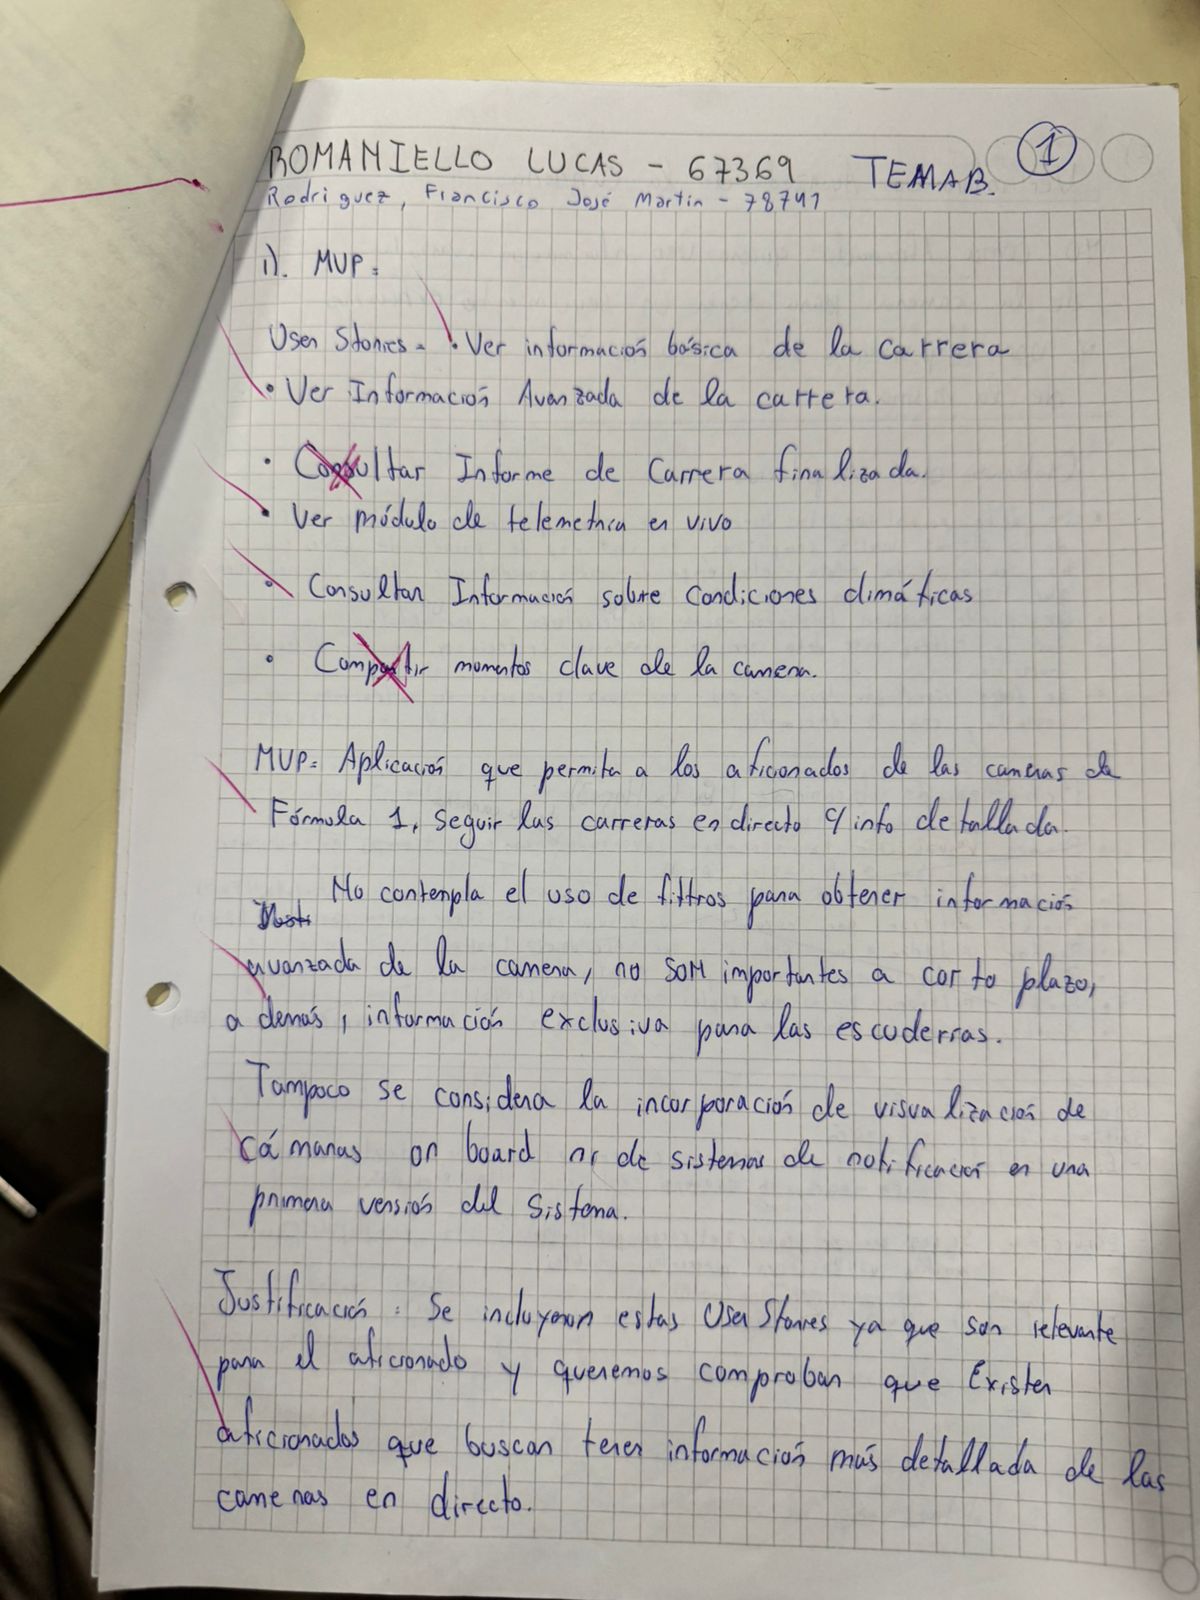 ROMANIELLO LUCAS - 67369 TEMA B. 1
Rodriguez, Francisco José Martin - 78741
1). MVP:
User Stories = • Ver información básica de la carrera
• Ver Información Avanzada de la carrera.
• Consultar Informe de Carrera finalizada.
• Ver módulo de telemetria en vivo
• Consultar Información sobre condiciones climáticas
• Compartir momentos clave de la carrera.
MVP= Aplicación que permita a los aficionados de las carreras de
Fórmula 1, seguir las carreras en directo c/ info detallada.
No contempla el uso de filtros para obtener información
avanzada de la carrera, no son importantes a corto plazo,
a demás, información exclusiva para las escuderias.
Tampoco se considera la incorporación de visualización de
cámaras on board ni de sistemas de notificación en una
primera versión del sistema.
Justificación: Se incluyeron estas User Stories ya que son relevante
para el aficionado y queremos comprobar que Existen
aficionados que buscan tener información más detallada de las
carreras en directo.